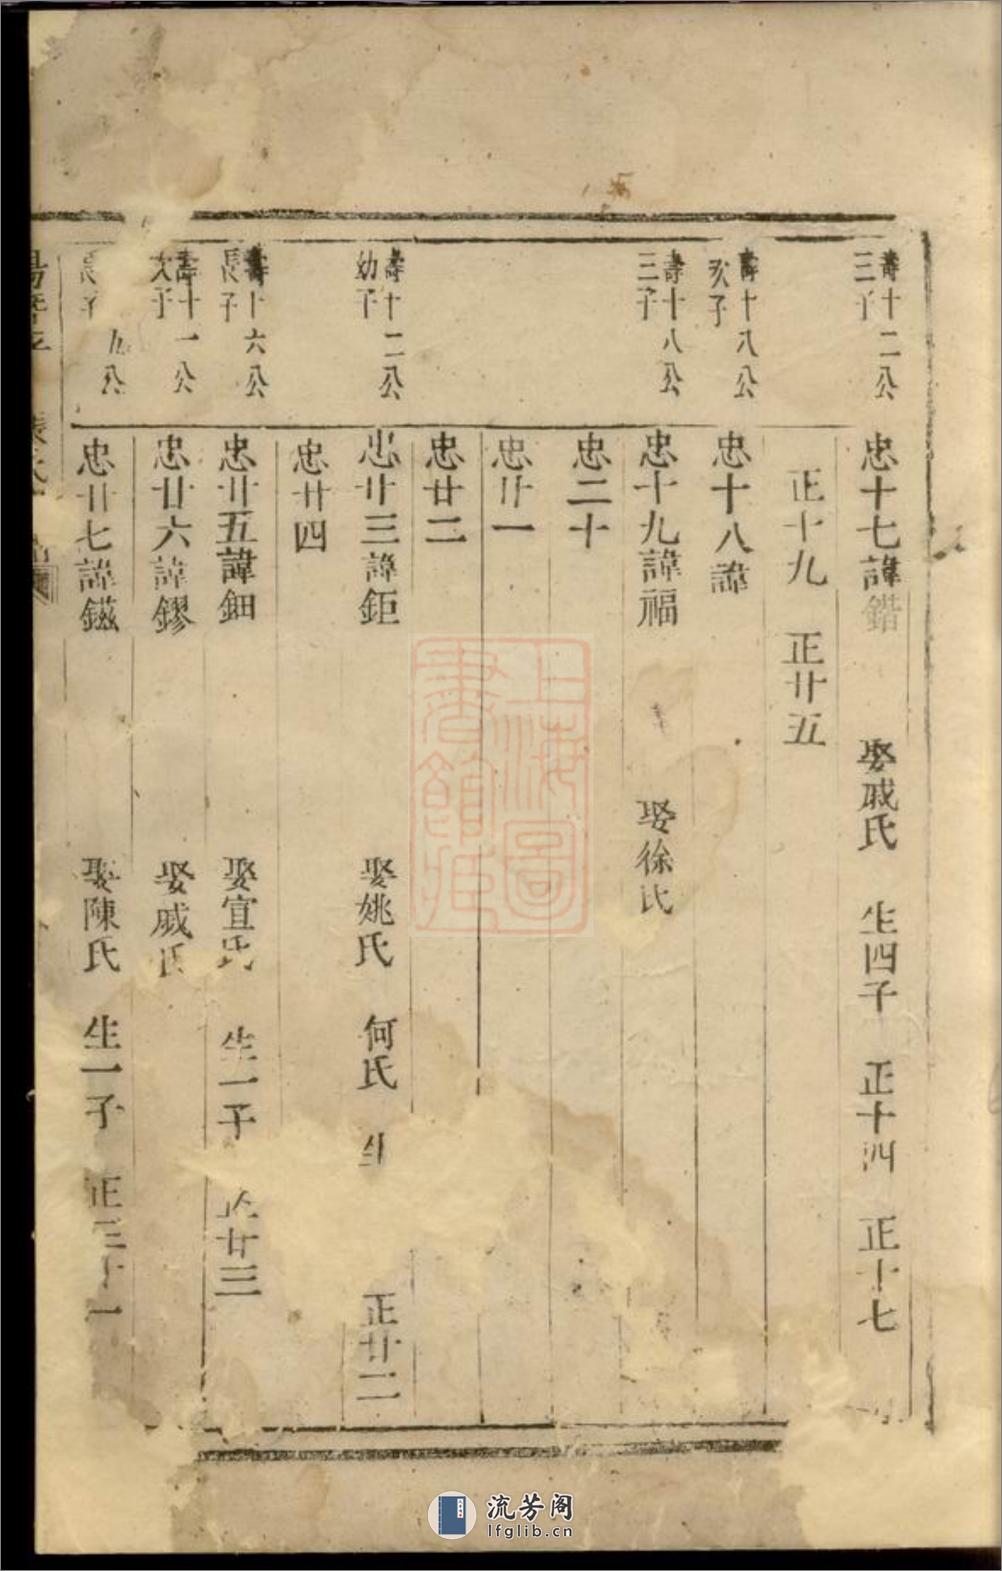 壽十二公
三子
忠十七諱鍇 娶戚氏 生四子 正十四 正十七
正十九 正廿五
壽十八公
次子
忠十八諱
壽十八公
三子
忠十九諱福 娶徐氏
忠二十
忠廿一
忠廿二
壽十二公
幼子
忠廿三諱鉅 娶姚氏 何氏 生 正廿二
忠廿四
壽十六公
長子
忠廿五諱鈿 娶宣氏 生一子 正廿三
壽十一公
次子
忠廿六諱鏐 娶戚氏
九公
長子
忠廿七諱鎡 娶陳氏 生一子 正三十一
暨
上海圖書館藏
流芳阁
lfglib.cn